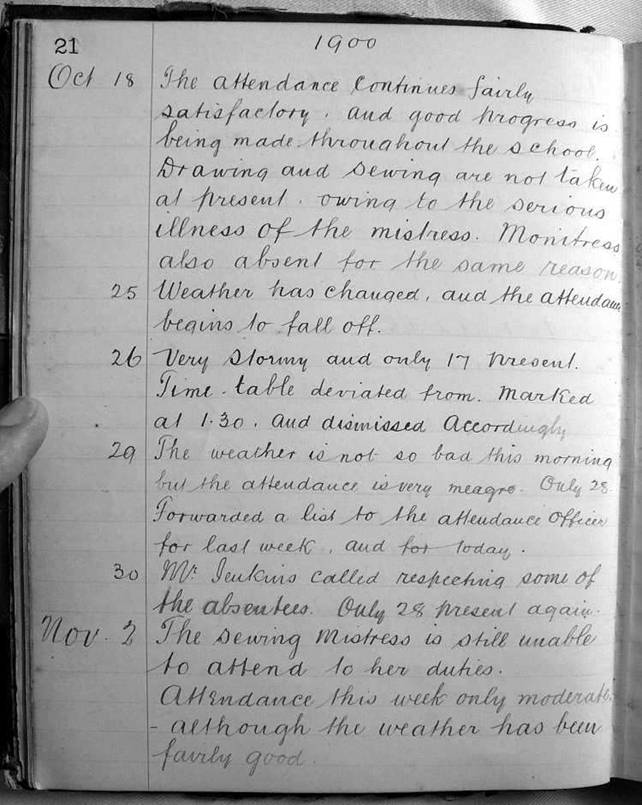 21 1900
Oct 18 The attendance continues fairly
satisfactory, and good progress is
being made throughout the school.
Drawing and Sewing are not taken
at present, owing to the serious
illness of the mistress. Monitress
also absent for the same reason.
25 Weather has changed, and the attendance
begins to fall off.
26 Very Stormy and only 17 present.
Time-table deviated from. Marked
at 1.30, and dismissed Accordingly
29 The weather is not so bad this morning
but the attendance is very meagre. Only 28
Forwarded a list to the attendance Officer
for last week, and for today.
30 Mr. Jenkins called respecting some of
the absentees. Only 28 present again.
Nov. 2 The Sewing Mistress is still unable
to attend to her duties.
Attendance this week only moderate
- although the weather has been
fairly good.